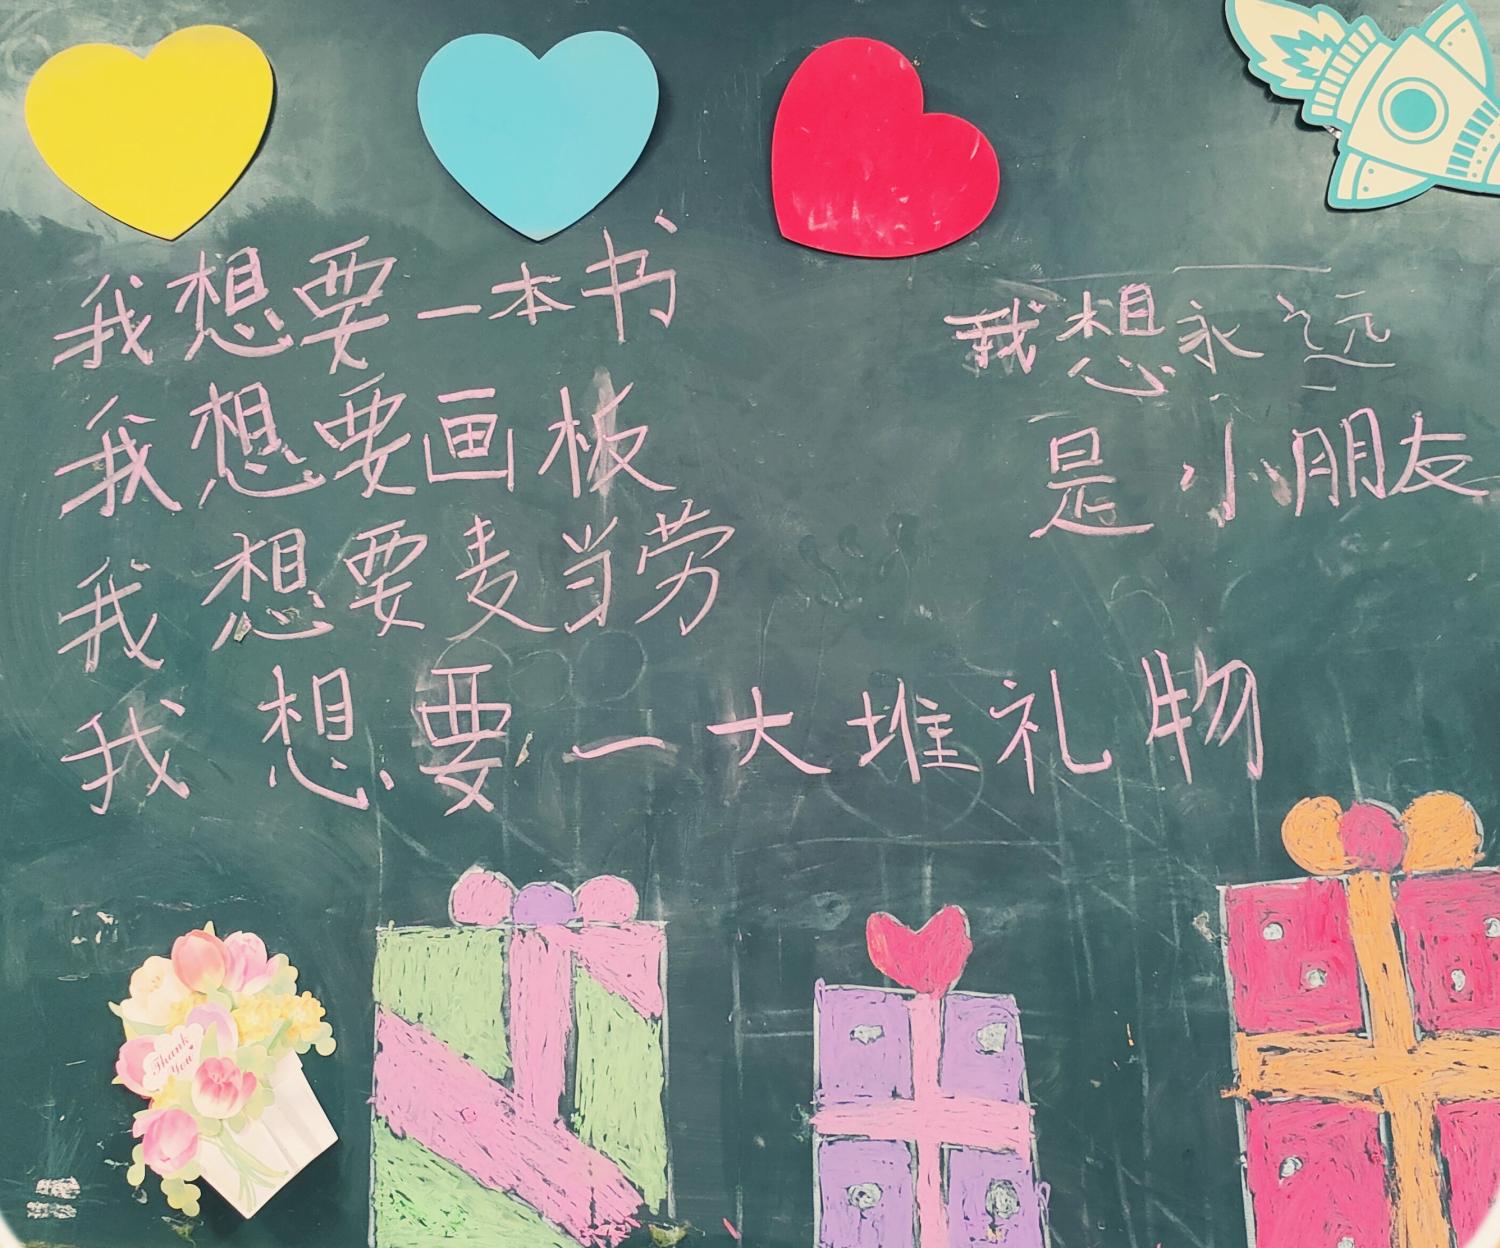 我想要一本书
我想要画板
我想要麦当劳
我想要一大堆礼物
我想永远
是小朋友
Thank
You